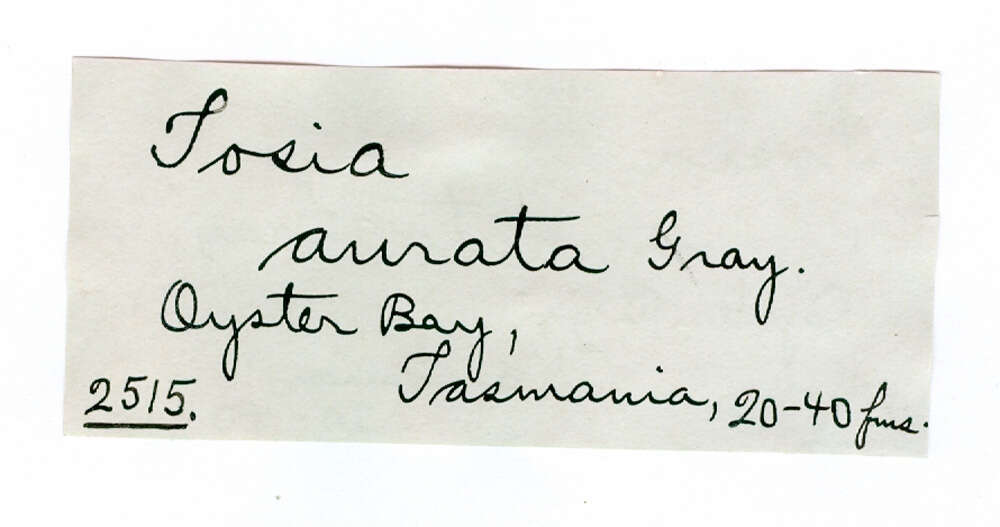 Tosia
aurata Gray.
Oyster Bay,
Tasmania, 20-40 fms.
2515.